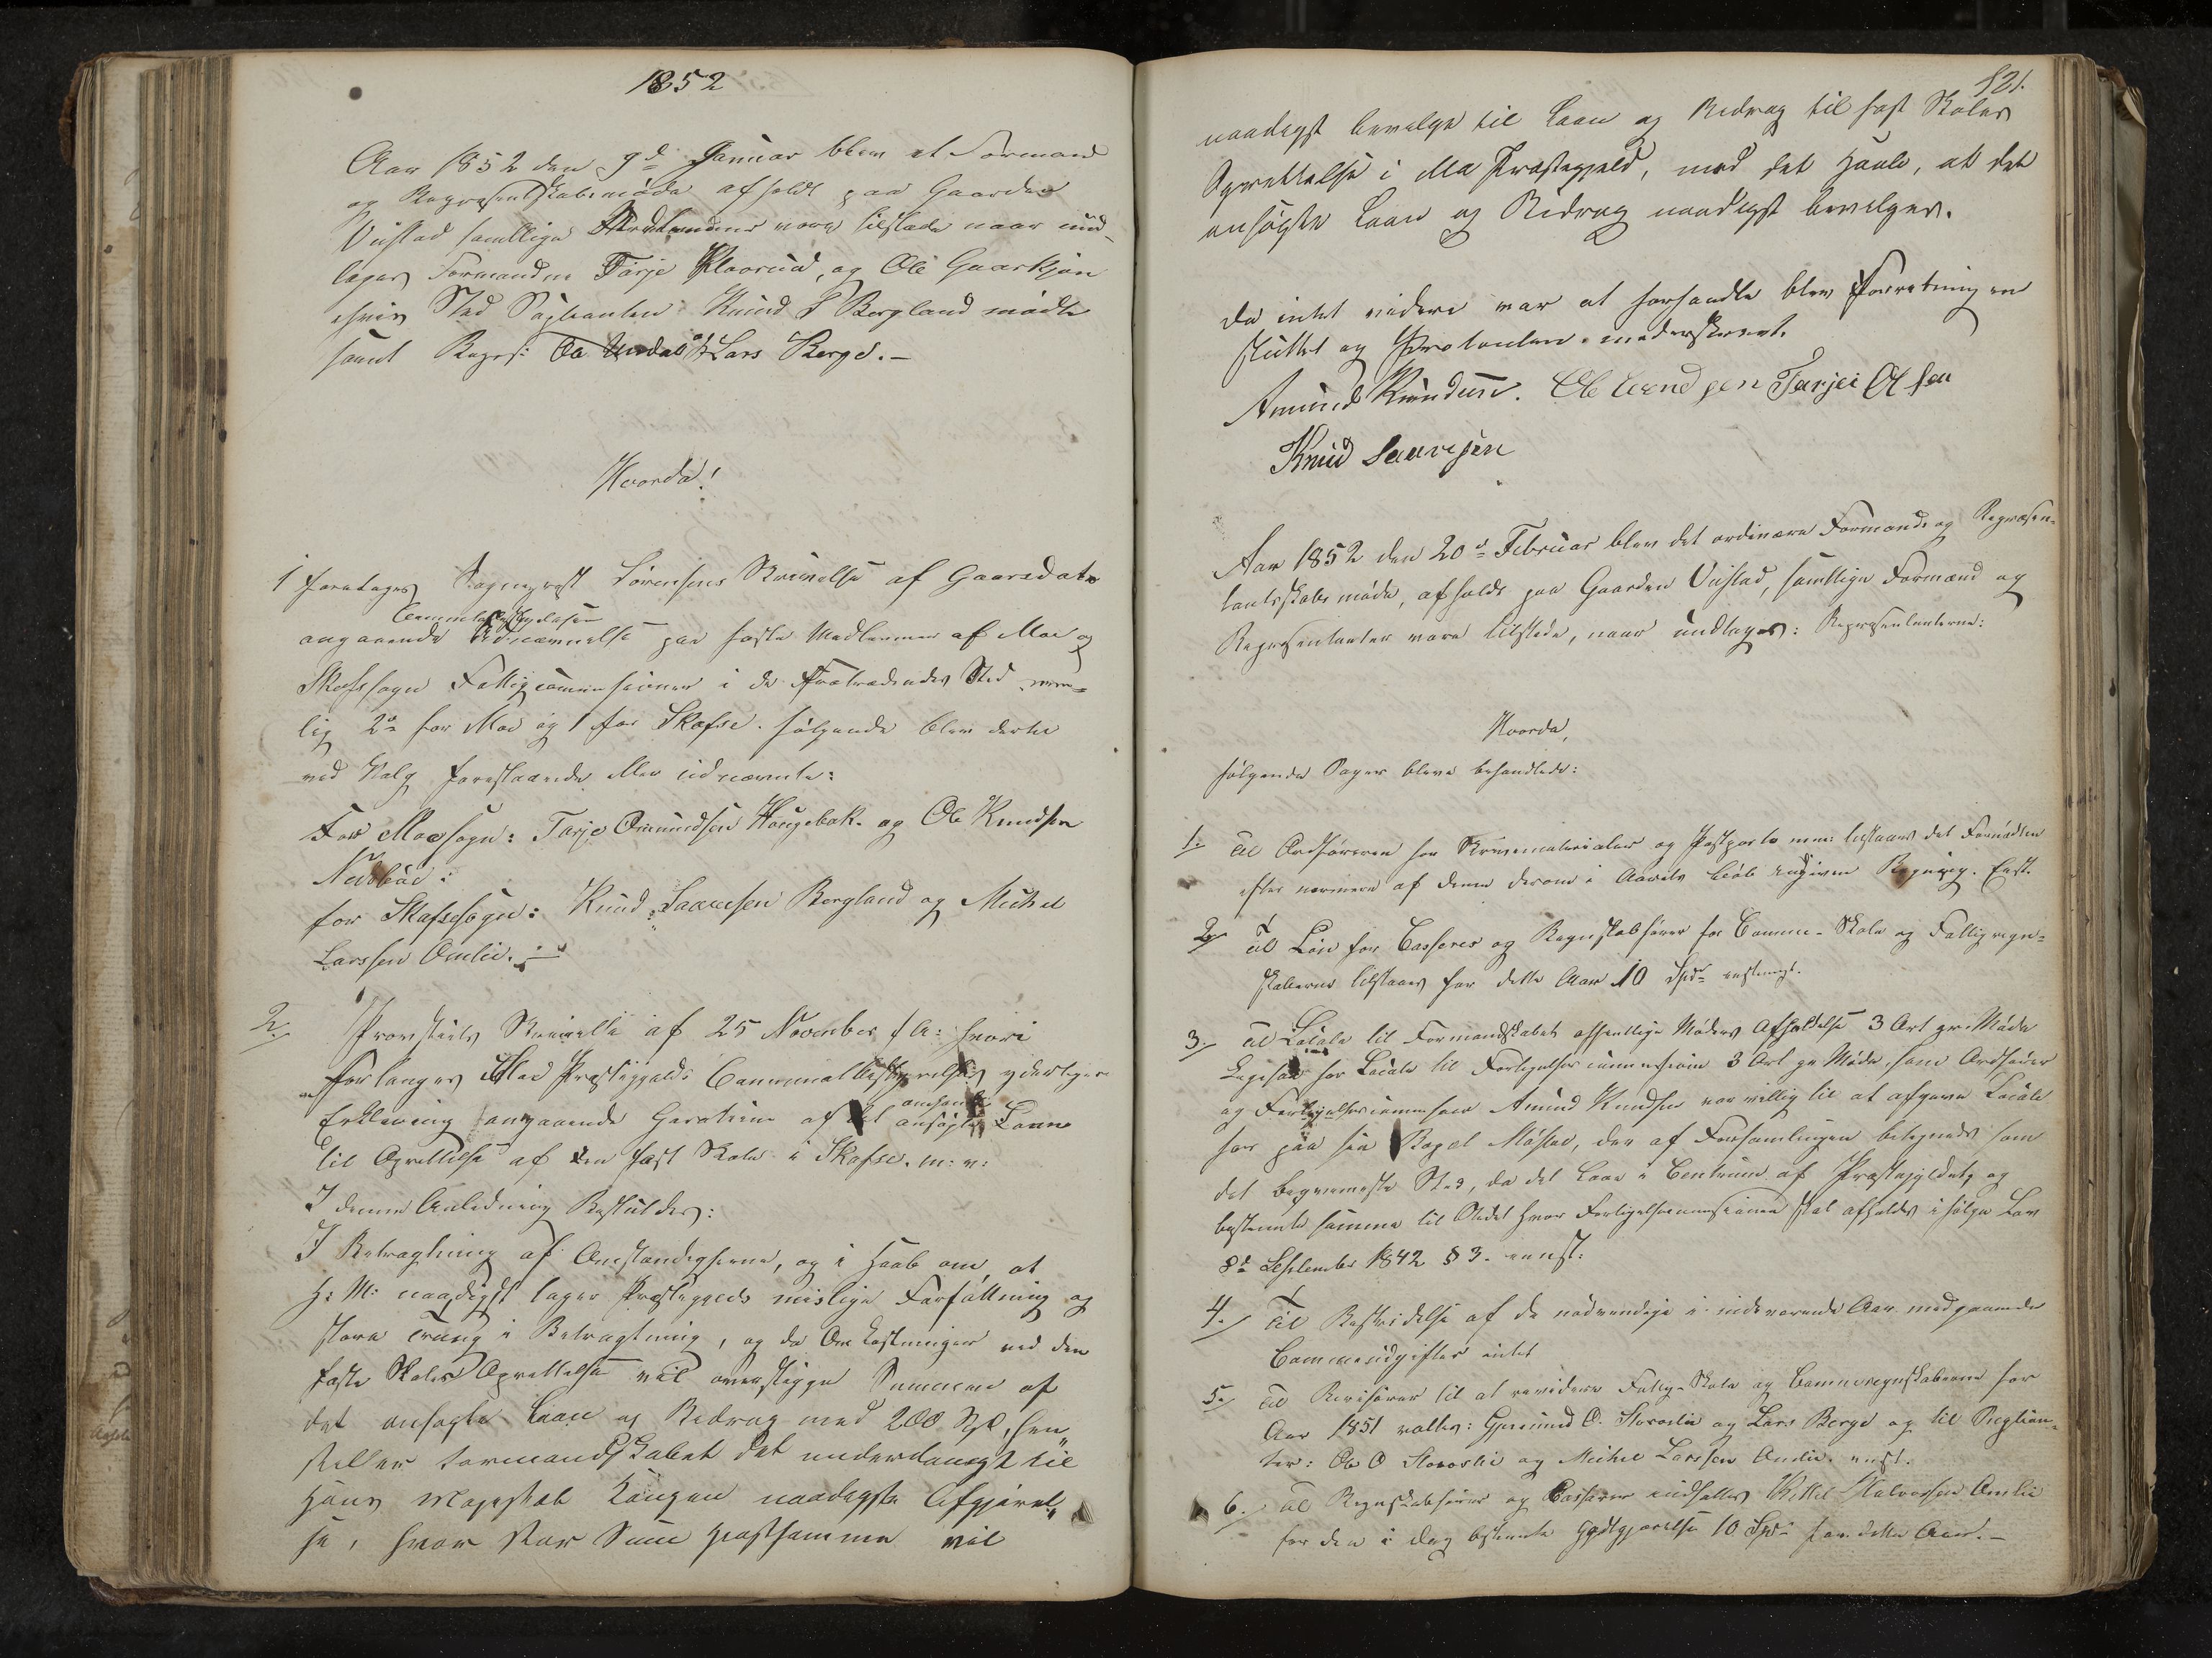 1852
Aar 1852 den 9d Januar blev et Formand
og Repræsentskabsmøde afholdt paa Gaarden
Vistad samtlige vare tilstæde naar und-
tages Formændene Tarje og Ole Gaarkjøn
i hvis Sted Supleanten Knud S Bergland mødte
samt Repræs: Lars Berge.-
Hvorda!
1 foretoges Sogneprest Sørensens Skrivelse af Gaarsdato
angaaende Udnævnelse paa faste Medlemmer af Moe og
Skafsesogn Fattigcommisioner i de Fratrædendes Sted nem-
lig 2de for Moe og 1 for Skafse. følgende blev dertil
ved Valg foreslaaede eller udnævnte:
For Moe sogn: Tarje Omundsen Haugebak. og Ole Knudsen
for Skafsesogn: Knud Saavesen Bergland og Michel
Larssen Omlie.
2. Provstiets Skrivelse af 25 November f A: hvori
forlanges Moe Præstegjelds Communalbestyrelses yderligere
Erklæring angaaende Garatien af det ansøgte Laan
til Oprettelse af en fast Skole i Skafse. m: v:
I denne Anledning Besluttedes:
I Betragtning af Omstændighederne, og i Haab om, at
H: M: naadigst tager Præstegjelds mislige Forfattning og
store Trang i Betragtning, og da Omkostninger ved den
faste Skoles Oprettelse vil overstigge Summen af
det ansøgte Laan og Bidrag med 200 Spd, hen
stiller Formandskabet det underdanigst til
Hans Majestæt Kongen naadigste Afgjørel-
se, hvor stor Sum Høistsamme vil
121.
naadigst bevilge til Laan og Bidrag til fast Skoles
Oprettelse i Moe Præstegjeld, med det Haab, at det
ansøgte Laan og Bidrag naadigst bevilges.
Da intet videre var at forhandle blev Forretningen
sluttet og Protocolen underskrevet.
Amund Knudsen. Ole Tarjei Olsen
Knud Saavesen
Aar 1852 den 20d Februar blev det ordinære Formands og Repræsen-
tantskabsmøde, afholdt paa Gaarden Vistad, samtlige Formænd og
Repræsentanter vare tilstede, naar undtages: Repræsentanterne:
Hvorda,
følgende Sager bleve behandlede:
1. Til Ordføreren for Skrivematerialer og Postporto m.m: tilstaaes det Fornødne
efter nærmere af denne derom i Aarets Løb indgiven Regning. Enst.
2. Til Løn for Casserer og Regnskabsfører for Commune- Skole og Fattigregn-
skaberne tilstaaes for dette Aar 10 Spd enstemigt.
3. Til Locale til Formandskabets offentlige Møders Afholdelse 3 Ort pr. Møde
Ligesaa for Locale til Forligelsescommission 3 Ort pr Møde, som Ordfører
og Forligelsescommissær Amund Knudsen var villig til at afgive Locale
for paa sin det af Forsamlingen betegnedes som
det beqvemeste Sted, da det laae i Centrum af Præstegjeldet, og
bestemte samme til Stedet hvor Forligelsescommisionen skal afholdes i følge Lov
8de September 1842 § 3. eenst:
4. Til Bestridelse af de nødvendige i indeværende Aar medgaaende
Communeudgifter intet
5. Til Revisorer til at revidere Fattig- Skole og Communeregnskaberne for
Aar 1851 valtes: Gjermund O. og Lars Berge og til Suplean-
ter: Ole O og Michel Larssen Omlie. enst.
6. Til Regnskabsfører og Casserer indsattes Kittel Halvorsen Omlie
for den i Dag bestemte Godtgjørelse 10 Spd for dette Aar.-